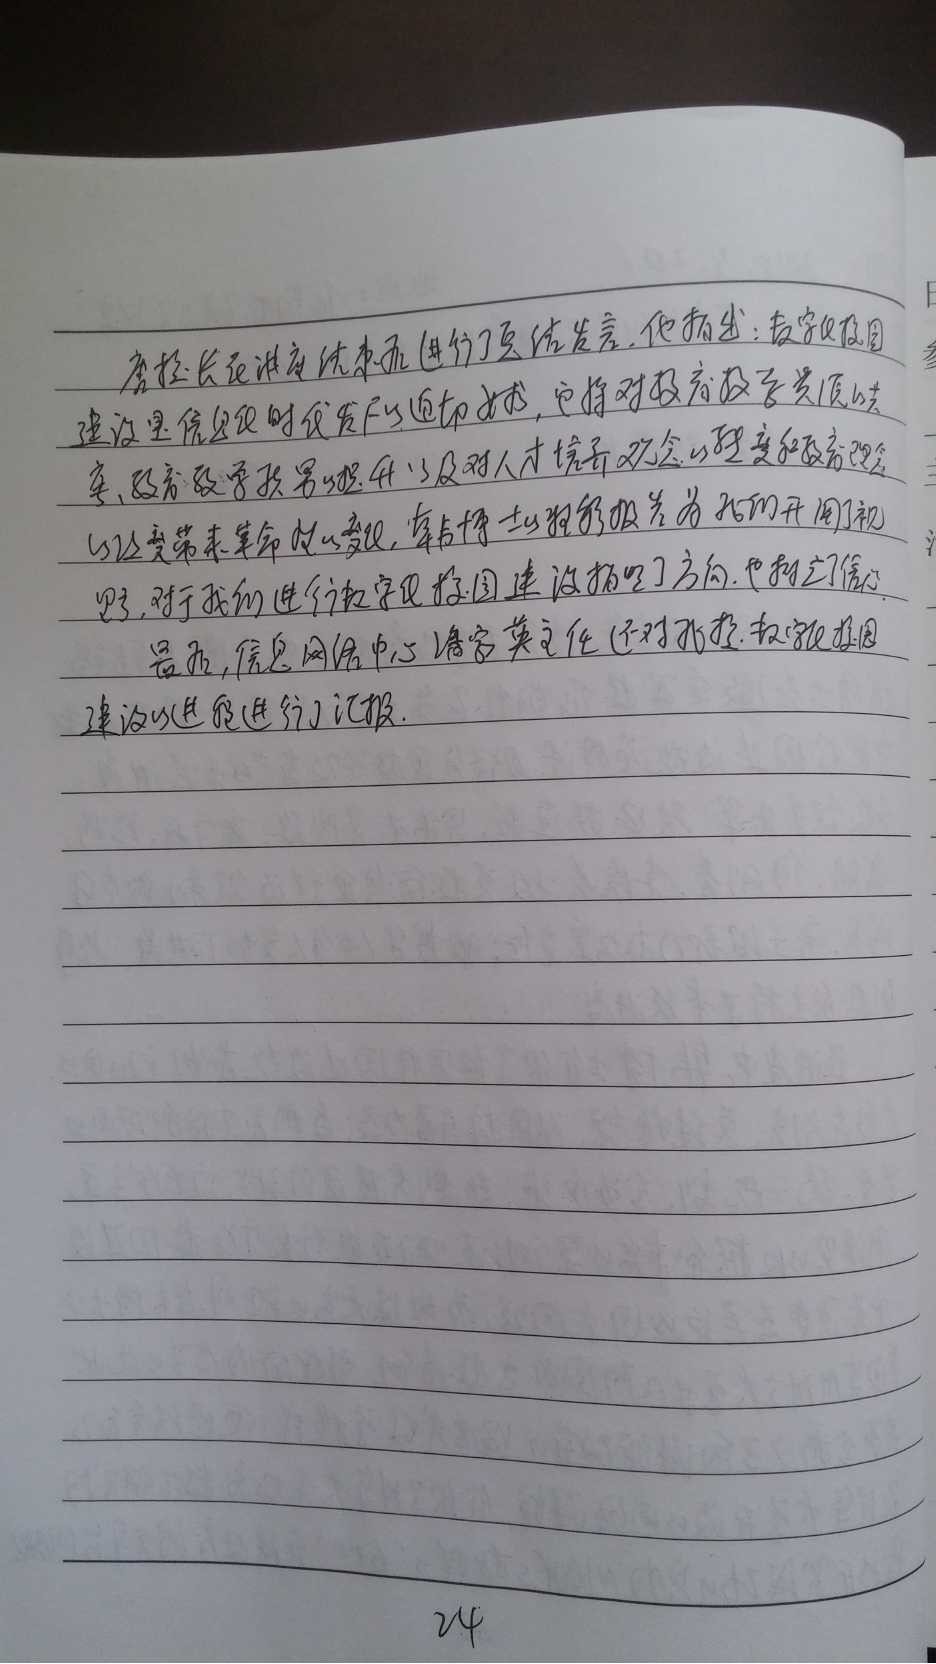 唐校长在讲座结束后进行了总结发言.他指出:数字化校园
建设是信息化时代发展的迫切要求,它将对教育教学资源的共
享、教育教学质量的提升以及对人才培养观念的转变和教育理念
的改变带来革命性的变化,博士的精彩报告为我们开阔了视
野,对于我们进行数字化校园建设指明了方向.也树立了信心.
最后,信息网络中心潘家英主任还对我校.数字化校园
建设的进程进行了汇报.
24